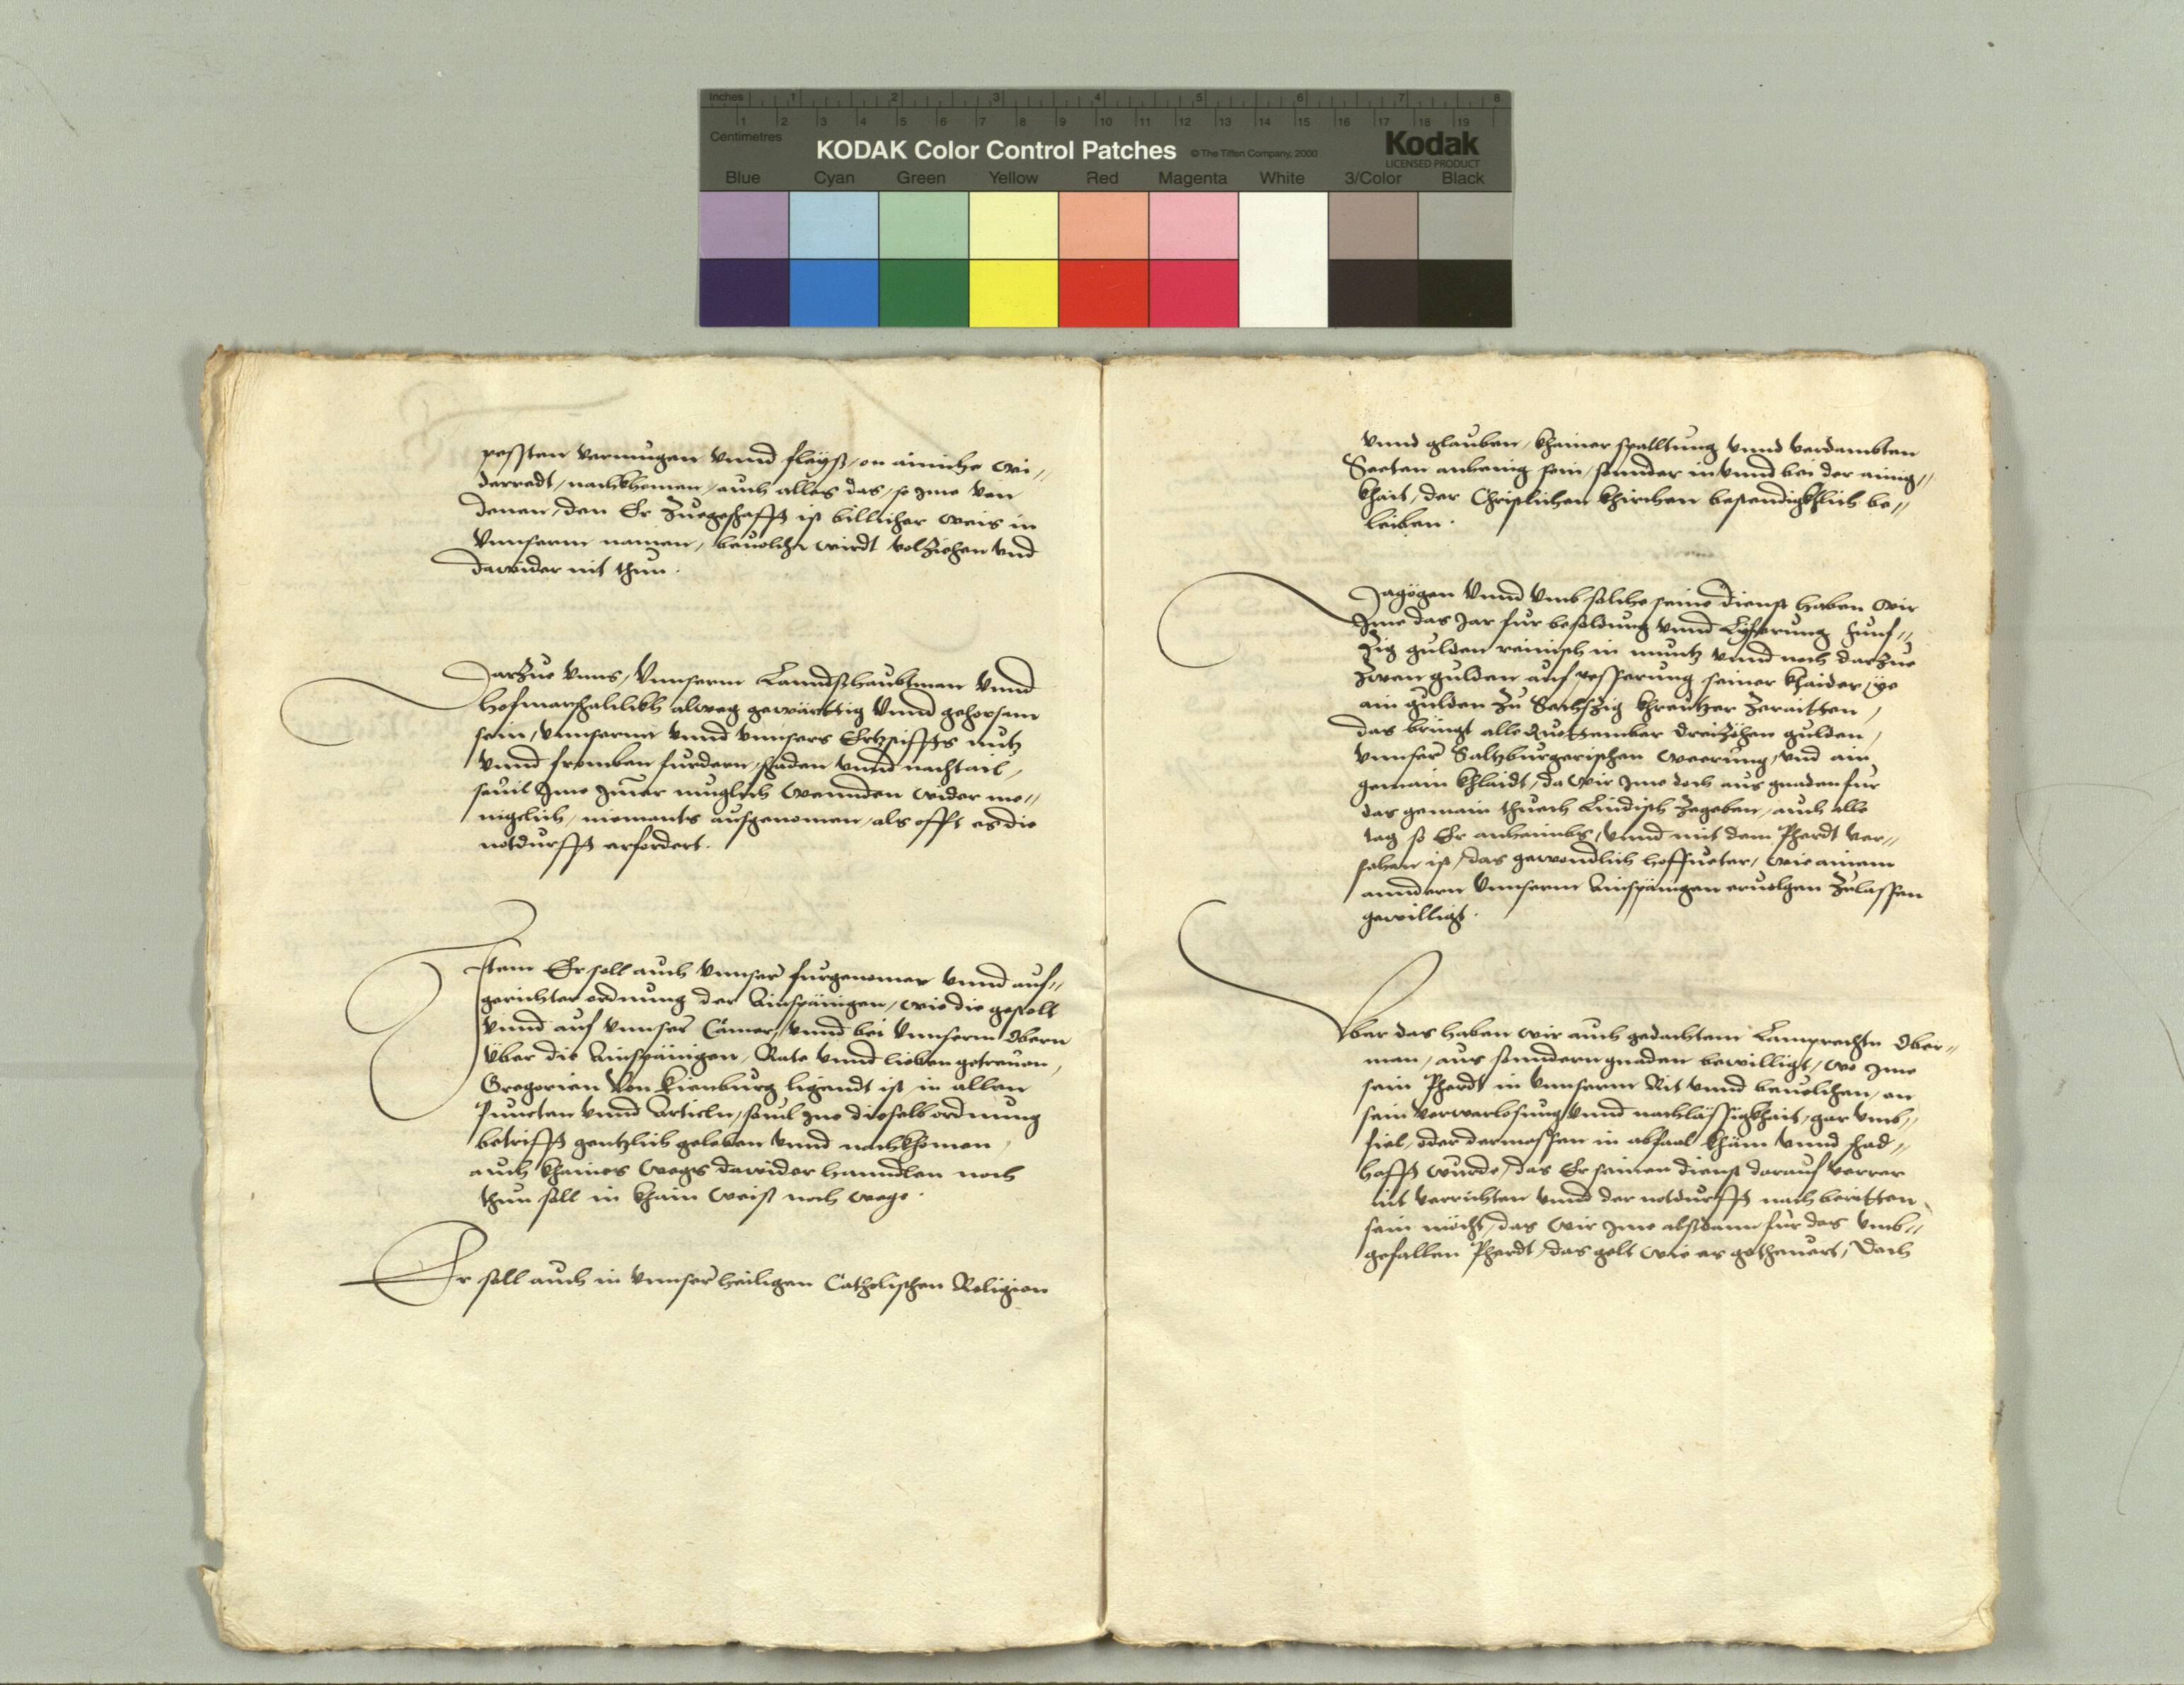 Inches 1 2 3 4 5 6 7 8
1 2 3 4 5 6 7 8 9 10 11 12 13 14 15 16 17 18 19
Centimetres
KODAK Color Control Patches © The Tiffen Company, 2000 Kodak
LICENSED PRODUCT
Blue Cyan Green Yellow Red Magenta White 3/Color Black
pessten vermugen vnnd fleyß, on ainiche wi-
derredt, nachkhomen, auch alles das, so Jme von
denen, den Er Zuegeschafft ist billicher weis in
Vnnserm namen, beuolchn wirdt volziehen vnd
dawider nit thun.
Darzue vnns, Vnnserm Lanndtshaubtman vnnd
Hofmarschalilkh alweg gewärttig vnnd gehorsam
sein, vnnsernn vnnd vnnsers Ertzstiffts nutz
vnnd fromben furdern, schaden vnnd nachtail,
souil Jme Jmer muglich wennden wider me-
nigclich, niemants ausgenomen, als offt es die
notdurfft erfordert.
Item Er soll auch vnnser furgenomer vnnd auf-
gerichter ordnung der Ainspänigen, wie die gestelt
vnnd auf vnnser Camer, vnnd bei vnnserm Obern
über die Ainspänigen, Rate vnnd lieben getreuen,
Gregorien von Kienburg ligendt ist in allen
Puncten vnnd Articln, souil Jne dieselb ordnung
betrifft gentzlich geleben vnnd nachkhomen,
auch khaines wegs dawider hanndlen noch
thun soll in khain weiß noch wege.
Er soll auch in vnnser heiligen Catholischen Religion
vnnd glauben, khainer spalltung vnnd verdambten
Secten anhenig sein, sonnder in vnnd bei der ainig-
khait, der Christlichen khirchen bestendigkhlich be-
leiben.
Dagögen vnnd vmb solche seine dienst haben wir
Jme das Jar fur besoldung vnnd Lyferung funf-
zig gulden reinisch in muntz vnnd noch darzue
Zwen gulden auf pesserung seiner khlaider, ye
ain gulden zu Sechszig khreutzer Zeraitten,
das bringt alle Quottember dreizöhen gulden,
vnnser Saltzburgerischen weerung, vnd ain
gemain khlaidt, da wir Jme doch aus gnaden fur
das gemain thuech Lindisch Zegeben, auch alle
tag so Er anhaimbs, vnnd mit dem Pherdt ver-
sehen ist, das gewondlich hoffueter, wie ainem
anndern vnnserm Ainspänigen eruolgen Zelassen
gewilligt.
Vber das haben wir auch gedachtem Lamprechtn Ober-
man, aus sonndern gnaden bewilligt, wo Jme
sein Pherdt in vnnserm Rit vnnd beuelchen, on
sein verwarlosung vnnd nachlässigkhait, gar vmb-
fiel, oder dermassen in abfaal khäm vnnd schad-
hafft wurde, das Er seinen dienst darauf verrer
nit verrichten vnnd der notdurfft nach beritten
sein möcht, das wir Jme alßdann für das vmb-
gefallen Pherdt, das gelt wie es getheuert, doch